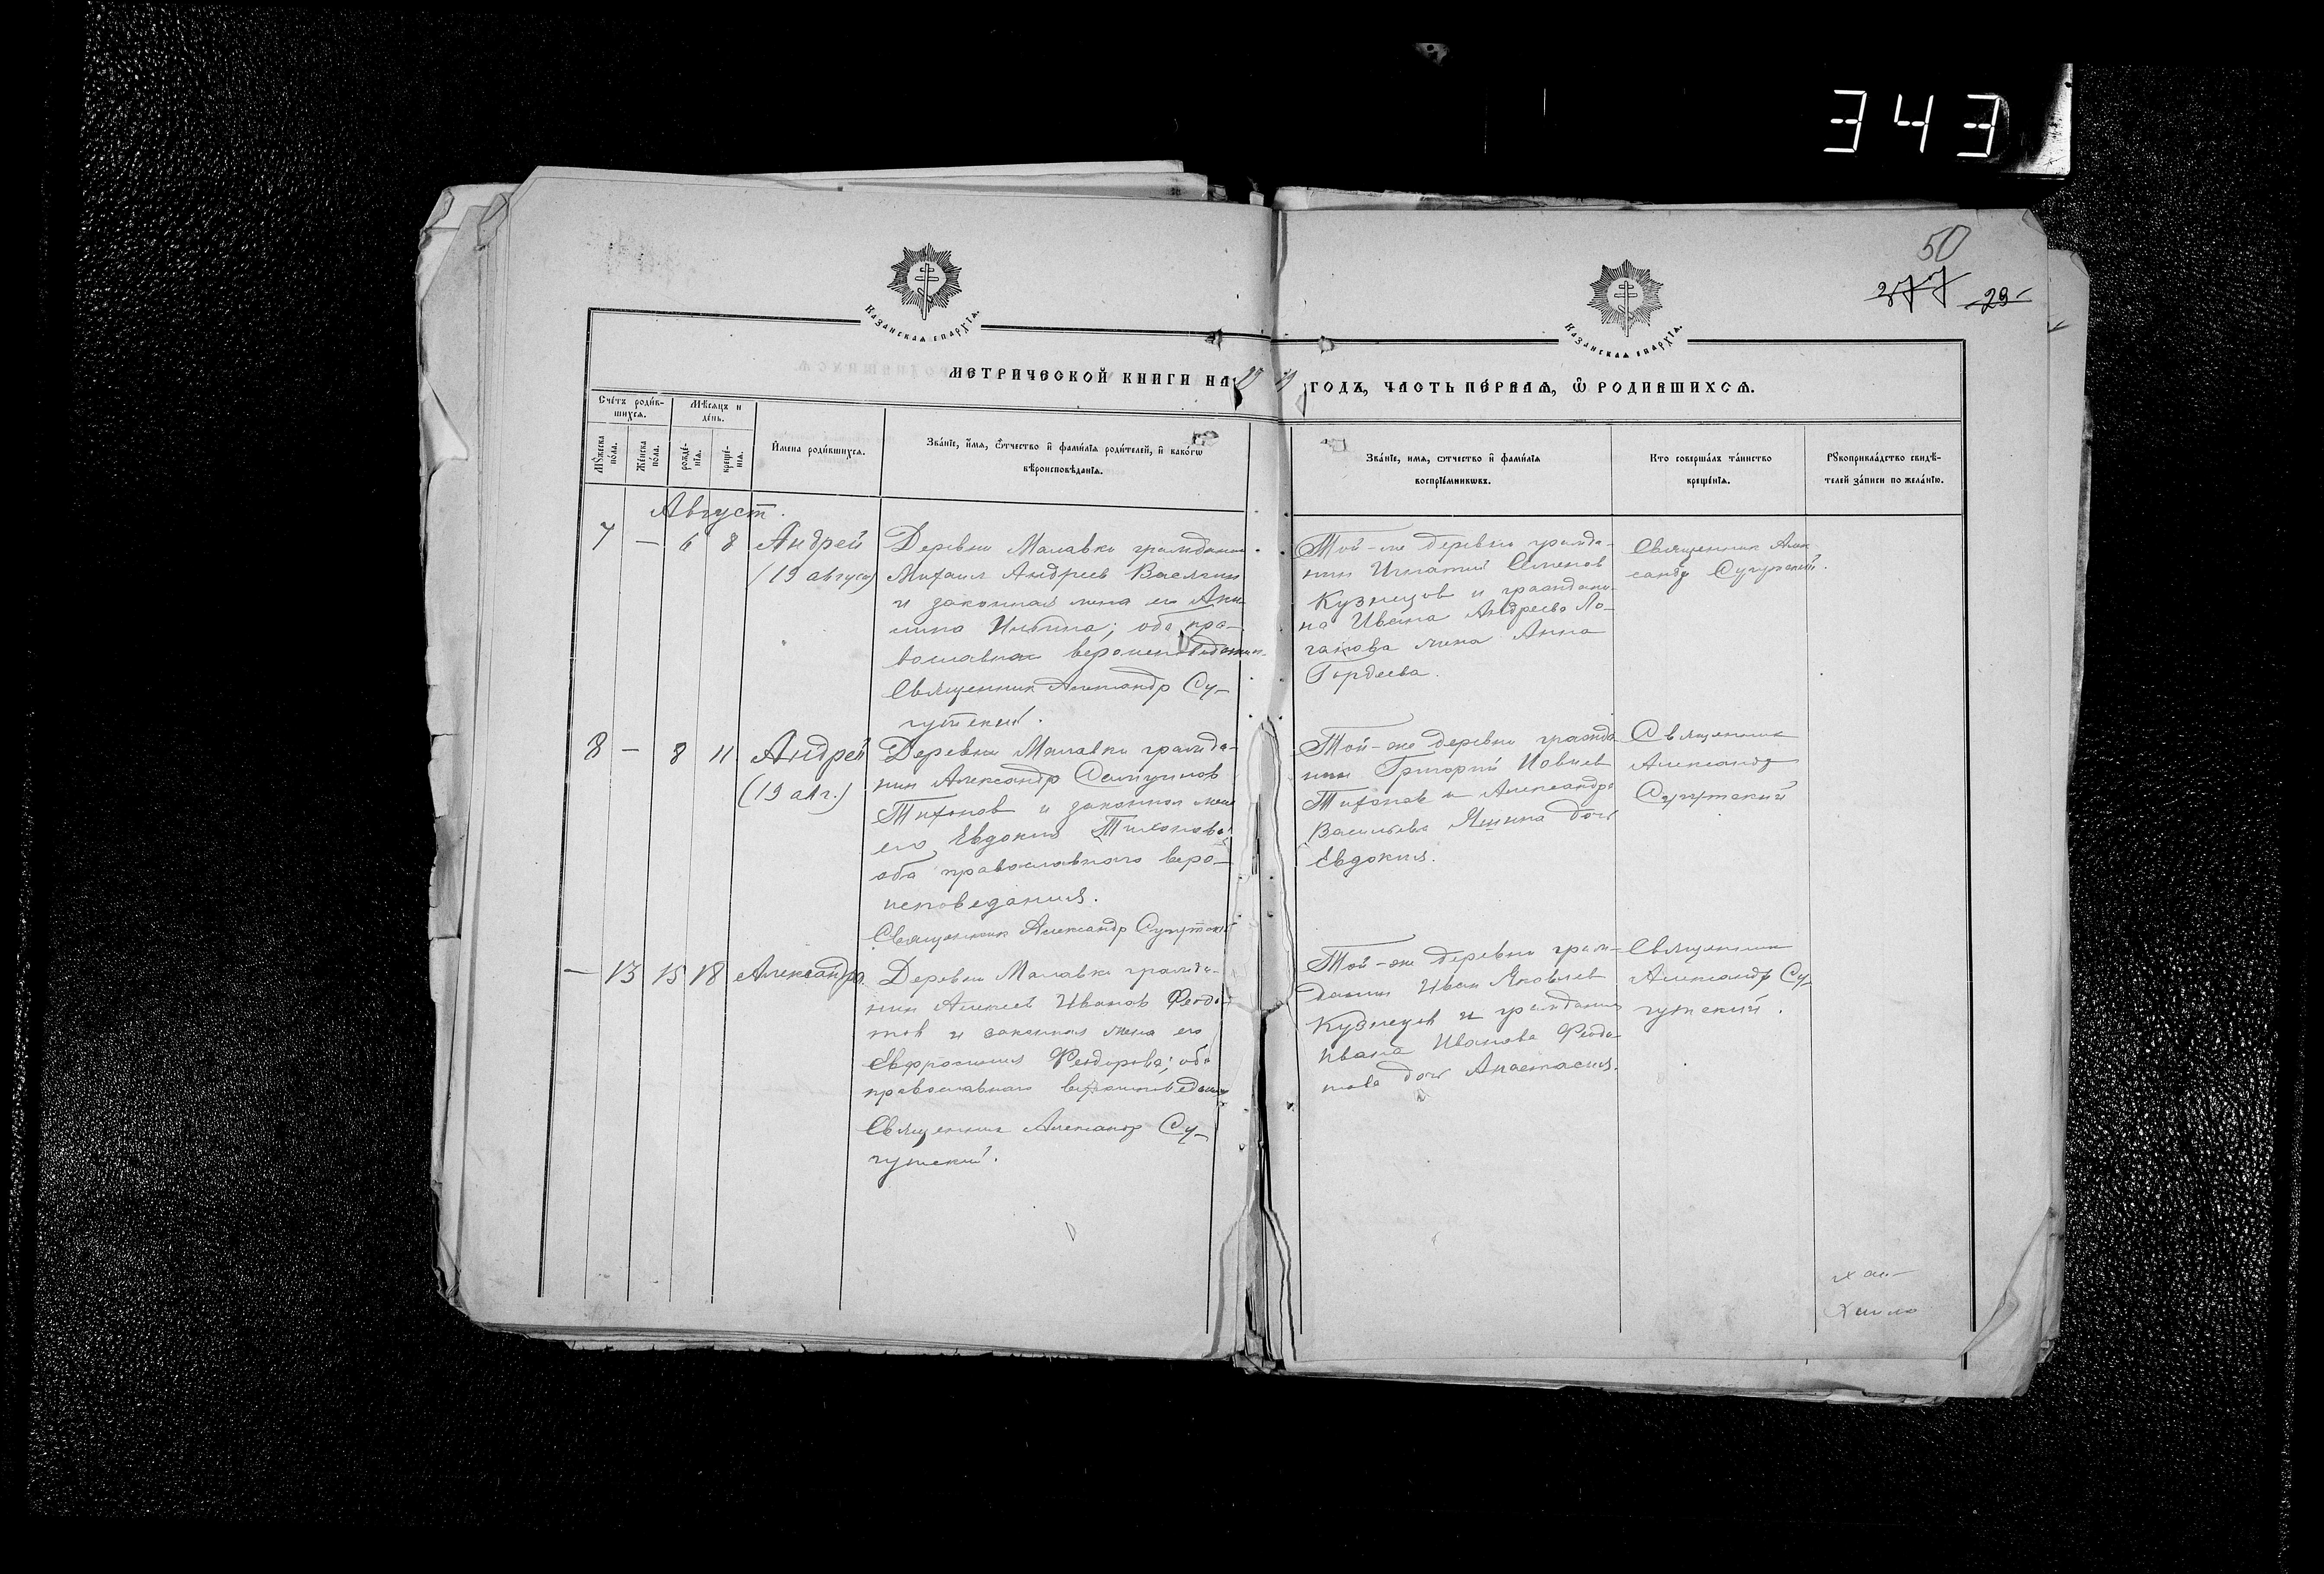 343
50
277 29
Казанская епархїѧ.
Казанская епархїѧ.
МЕТРИЧЕСКОЙ КНИГИ НА 19 19 ГОДЪ, ЧАСТЬ ПЕ́РВАѦ, Ѽ РОДИВШИХСѦ.
Сче́тъ роди́в-
шихсѧ.
Мѣ́сѧцъ и
де́нь.
Мꙋ́жеска
по́ла.
Же́нска
по́ла.
рожде́-
нїѧ.
креще́-
нїѧ.
И́мена роди́вшихсѧ.
Зва́нїе, и́мѧ, ѻ́тчество и҆ фами́лїѧ роди́телей, и҆ како́гѡ
вѣроисповѣ́данїѧ.
Зва́нїе, имѧ, ѻтчество и҆ фами́лїѧ
воспрїе́мникѡвъ.
Кто соверша́лъ та́инство
креще́нїѧ.
Рꙋкоприкла́дство свидѣ́-
телей за́писи по жела́нїю.
Август.
7 — 6 8 Андрей
(19 августа)
Деревни Малавки гражданин
Михаил Андреев
и законная жена его
Ильина; оба пра-
вославнаго вероисповедания
Священник Александр Су-
гутский.
Той-же деревни гражда-
нин Игнатий Семенов
Кузнецов и граждани-
на Ивана Андреева
жена Анна
Гордеева.
Священник Алек
сандр Сугутский.
8 — 8 11 Андрей
(19 авг.)
Деревни Малавки гражда-
нин Александр
Тихонов и законная жена
его Евдокия Тихонова
оба православнаго веро-
исповедания.
Священник Александр Сугутский
Той-же деревни гражда
нин Григорий
Тихонов и Александра
Васильева дочь
Евдокия.
Священник
Александр
Сугутский
— 13 15 18 Александра
Деревни Малавки гражда-
нин Алексей Иванов Феодо-
тов и законная жена его
Евфросиния Феодорова; оба
православнаго вероисповедания
Священник Александр Су-
гутский.
Той-же деревни граж-
данин Иван Яковлев
Кузнецов и гражданина
Ивана Иванова Феодо-
това дочь Анастасия.
Священник
Александр Су-
гутский.